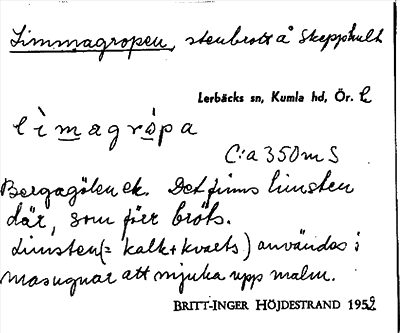 Limmagropen, stenbrott å Skepphult
Lerbäcks sn, Kumla hd, Ör. l.
lìmagrópa
C:a 350 m S
Bergagölen ek. Det finns limsten
där, som förr bröts.
Limsten (= kalk + kvarts) användes i
masugnar att mjuka upp malm.
BRITT-INGER HÖJDESTRAND 1952